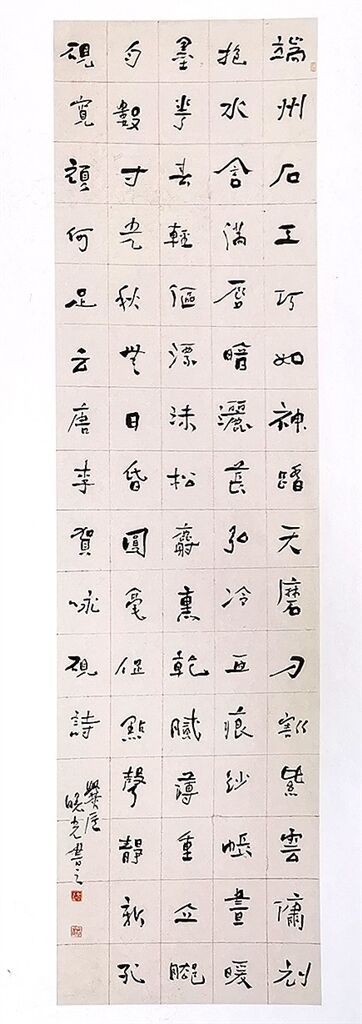 端州石工巧如神踏天磨刀割紫雲傭刓
抱水含滿唇暗灑萇弘冷血痕紗帳晝暖
墨花春輕漚漂沫松麝熏乾膩薄重立腳
勻數寸光秋無日昏圓毫促點聲靜新孔
硯寬頑何足云唐李賀詠硯詩
曉光書之